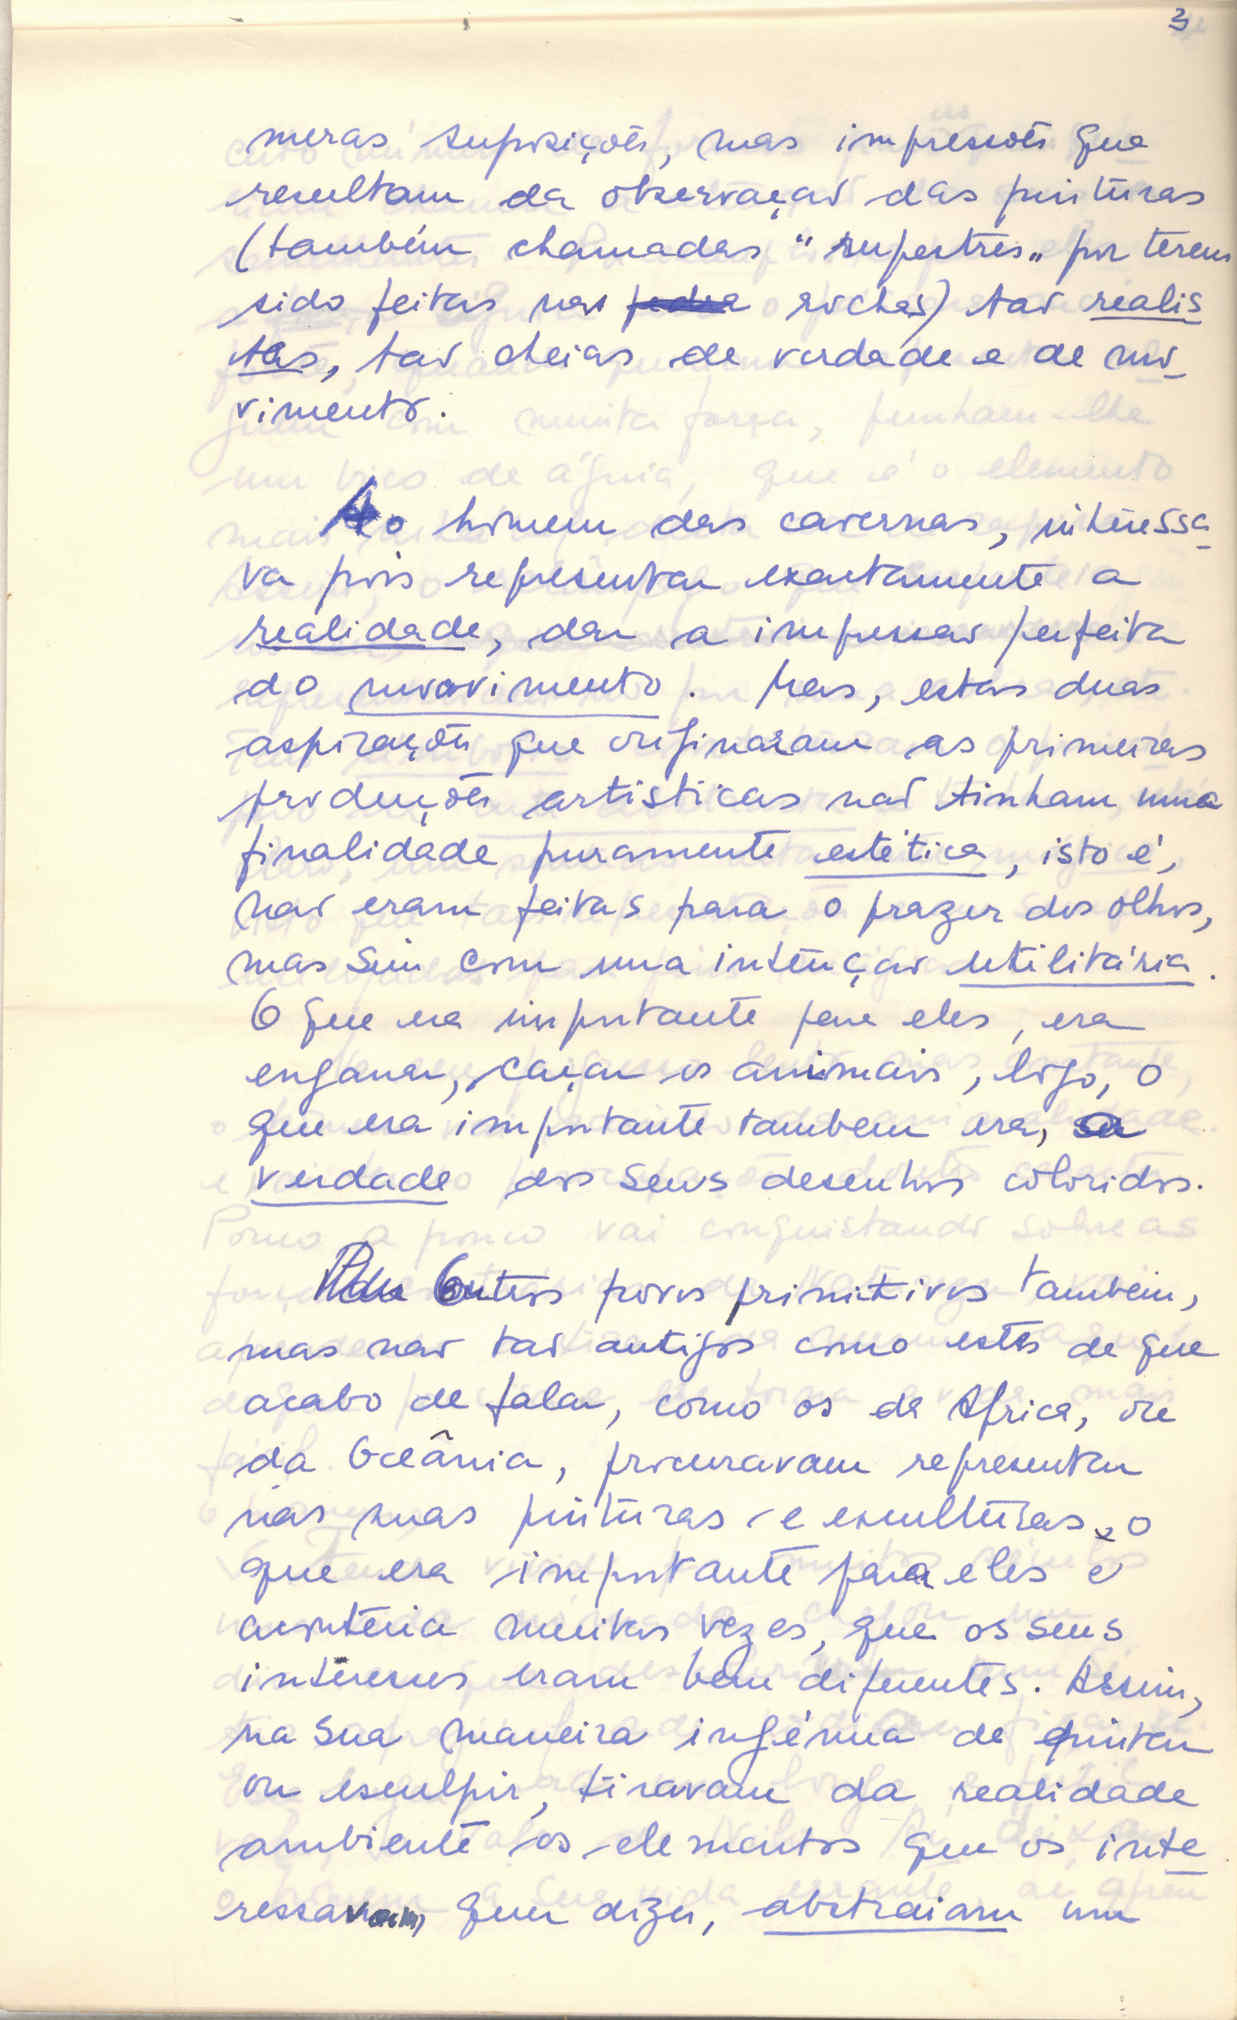 3
meras suposições, mas impressões que
resultam da observação das pinturas
(também chamadas "rupestres" por terem
sido feitas nas pedra rochas) tão realis
tas, tão cheias de verdade e de mo_
vimento.
Ao homem das cavernas, interessa_
va pois representar exactamente a
realidade, dar a impressão perfeita
do movimento. Mas, estas duas
aspirações que originaram as primeiras
produções artisticas não tinham uma
finalidade puramente estética, isto é,
não eram feitas para o prazer dos olhos,
mas sim com uma intenção utilitária.
O que era importante para eles, era
enganar, caçar os animais, logo, o
que era importante tambem era, a
verdade dos seus desenhos coloridos.
Outros povos primitivos tambem,
mas não tão antigos como estes de que
acabo de falar, como os da Africa, ou
da Oceânia, procuravam representar
nas suas pinturas e esculturas, o
que era importante para eles e
acontecia muitas vezes, que os seus
interesses eram bem diferentes. Assim,
na sua maneira ingénua de pintar
ou esculpir, tiravam da realidade
ambiente os elementos que os inte_
ressavam, quer dizer, abstraiam um